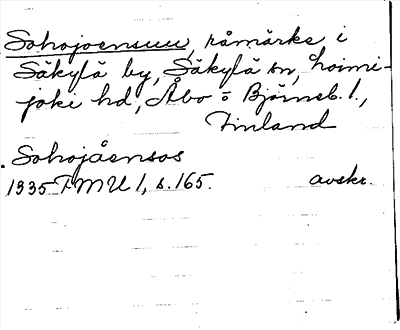 Sohojoensuu, råmärke i
Säkylä by, Säkylä sn, Loimi-
joki hd, Åbo o Björneb. l.,
Finland
. Sohojåensos
1335 FMU 1, s. 165. avskr.